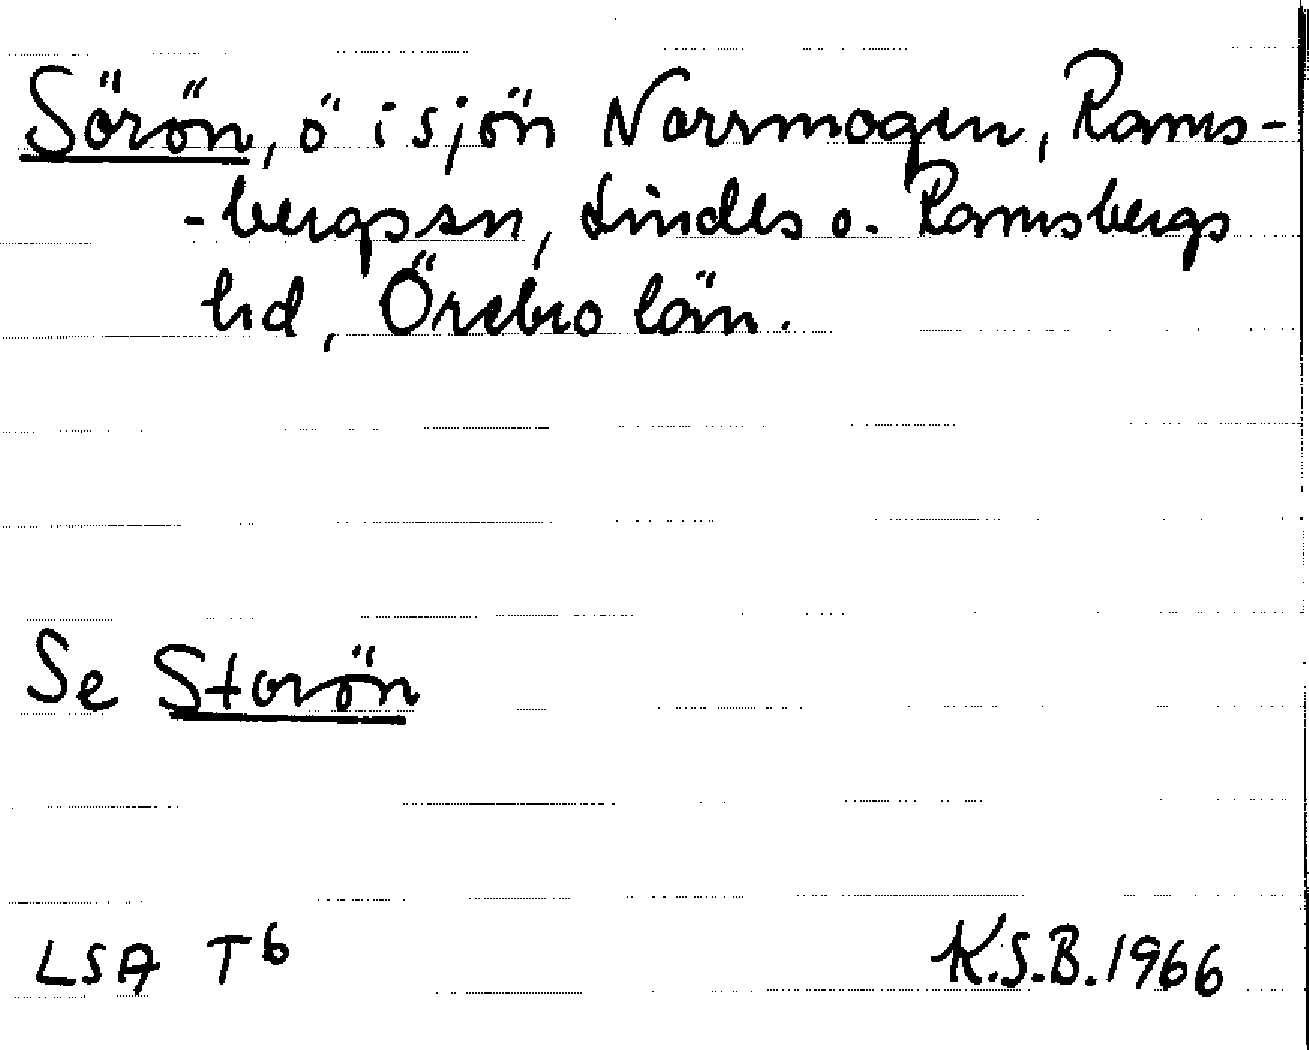 Sörön, ö i sjön Norrmogen, Rams-
-bergs sn, Lindes o. Ramsbergs
hd, Örebro län.
Se Storön
LSA T6
K.S.B. 1966